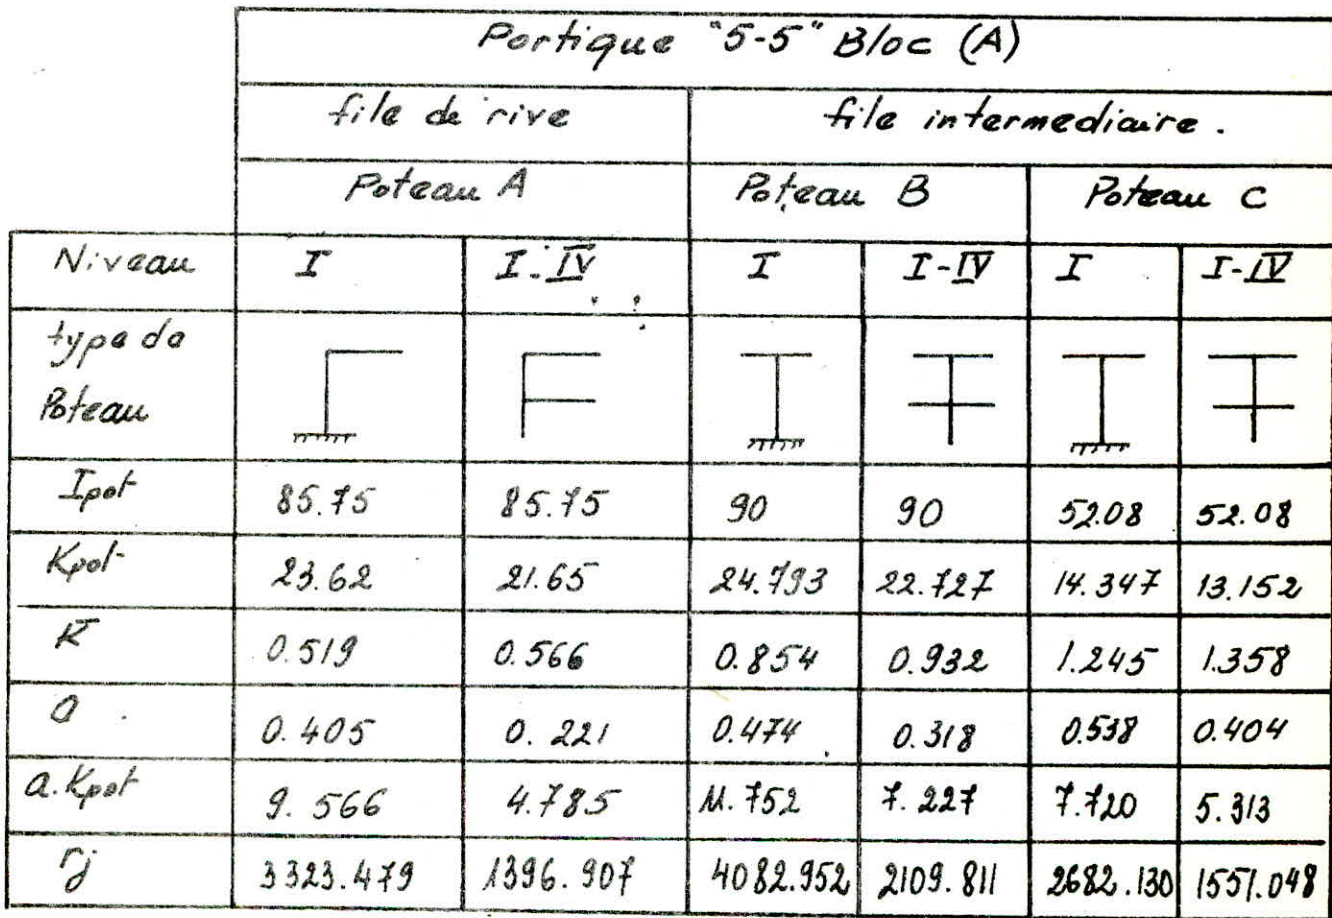 Portique "5-5" Bloc (A)
file de rive file intermediaire.
Poteau A Poteau B Poteau C
Niveau I I-IV I I-IV I I-IV
type de
Poteau
Ipot 85.75 85.75 90 90 52.08 52.08
Kpot 23.62 21.65 24.793 22.727 14.347 13.152
K̅ 0.519 0.566 0.854 0.932 1.245 1.358
a 0.405 0.221 0.474 0.318 0.538 0.404
a.Kpot 9.566 4.785 11.752 7.227 7.720 5.313
rj 3323.479 1396.907 4082.952 2109.811 2682.130 1551.048